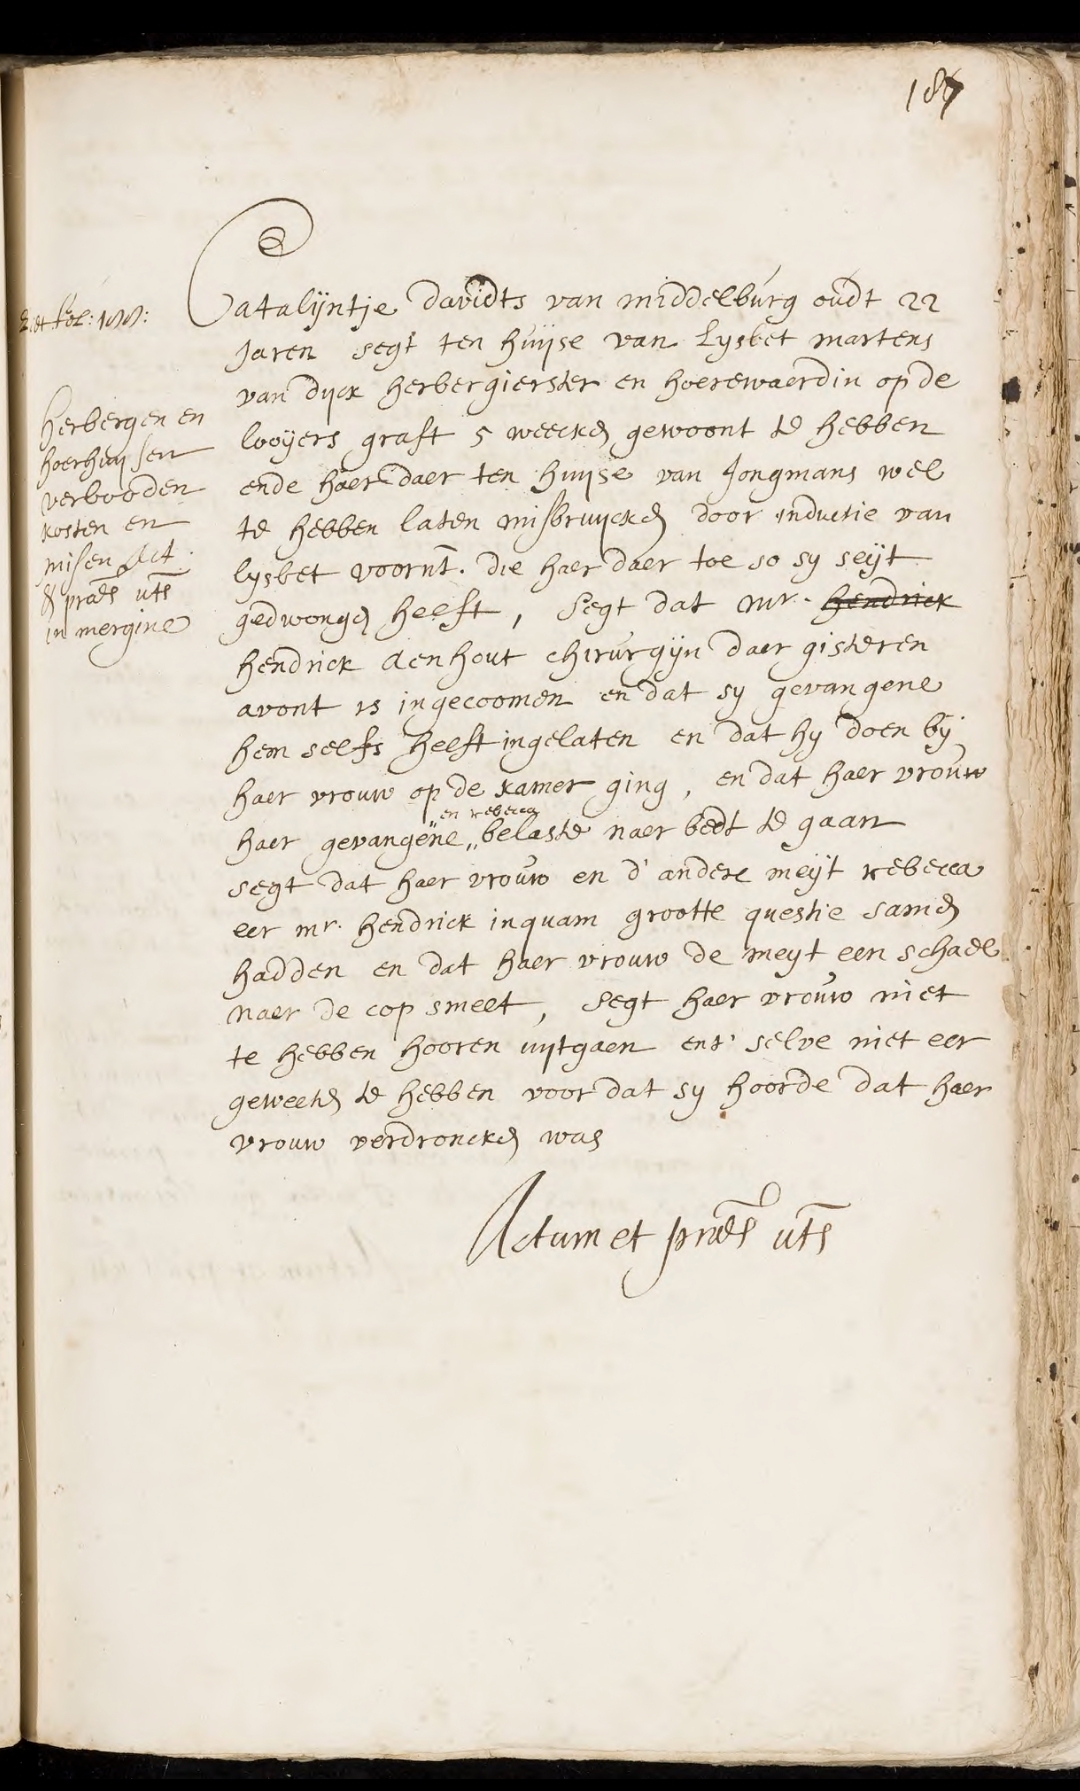 187
Catalijntje davidts van middelburg oudt 22
Jaren segt ten huijse van Lysbet martens
van dyck herbergierster en hoerewaerdin op de
looijers graft 5 weecken gewoont te hebben
ende haer daer ten huijse van Jongmans wel
te hebben laten misbruijcken door inductie van
lysbet voornt. die haer daer toe so sy seijt
gedwongen heeft, segt dat mr. hendrick
hendrick aenhout chirurgijn daer gisteren
avont is ingecoomen en dat sy gevangene
hem selfs heeft ingelaten en dat hy doen by
haer vrouw op de kamer ging, en dat haer vrouw
en rebecca
haer gevangene „ belaste naer bedt te gaan
segt dat haer vrouw en d' andere meijt rebecca
eer mr. hendrick inquam grootte questie samen
hadden en dat haer vrouw de meyt een schael
naer de cop smeet, segt haer vrouw niet
te hebben hooren uytgaen ent' selve niet eer
geweeten te hebben voor dat sy hoorde dat haer
vrouw verdroncken was
Actum et præs uts
fol:
herbergen en
hoerhuijsen
verbooden
kosten en
misen Act.
& præs uts
in mergine